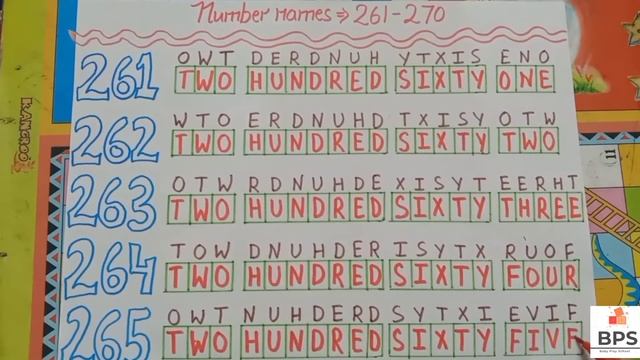 Number names ⇒ 261-270
OWT DERDNUH YTXIS ENO
261 TWO HUNDRED SIXTY ONE
WTO ERDNUHD TXISY OTW
262 TWO HUNDRED SIXTY TWO
OTW RDNUHDE XISYT EERHT
263 TWO HUNDRED SIXTY THREE
TOW DNUHDER ISYTX RUOF
264 TWO HUNDRED SIXTY FOUR
OWT NUHDERD SYTXI EVIF
265 TWO HUNDRED SIXTY FIVF
KANGROO
11
BPS